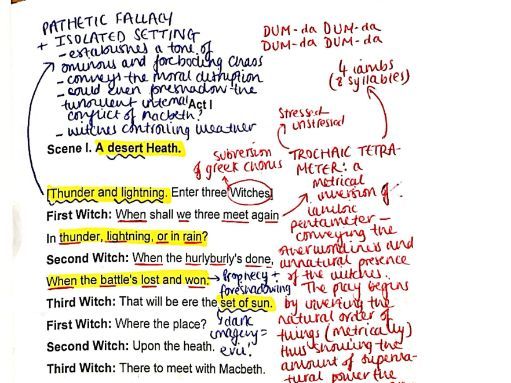 PATHETIC FALLACY
+ ISOLATED SETTING
- establishes a tone of
ominous and foreboding chaos
- conveys the moral disruption
- could even foreshadow the
turbulent internal
conflict of Macbeth?
- witches controlling weather
DUM-da DUM-da
DUM-da DUM-da
4 iambs
(8 syllables)
Stressed
unstressed
TROCHAIC TETRA-
METER: a
metrical
inversion of
iambic
pentameter -
conveying the
otherworldliness and
unnatural presence
of the witches.
The play begins
by inverting the
natural order of
things (metrically)
thus showing the
amount of superna-
tural power the
subversion
of greek chorus
Act I
Scene I. A desert Heath.
[Thunder and lightning. Enter three Witches]
First Witch: When shall we three meet again
In thunder, lightning, or in rain?
Second Witch: When the hurlyburly's done,
When the battle's lost and won.
→ Prophecy +
foreshadowing
Third Witch: That will be ere the set of sun.
First Witch: Where the place?
dark
imagery =
evil!
Second Witch: Upon the heath.
Third Witch: There to meet with Macbeth.